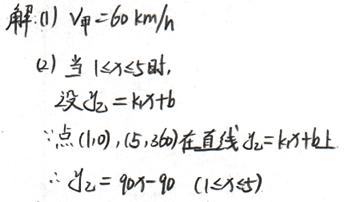 解:(1) V甲=60 km/h
(2) 当 1≤x≤5时,
设 y乙=k₁x+b
∵点(1,0),(5,360)在直线y乙=k₁x+b上
∴ y乙=90x-90 (1≤x≤5)